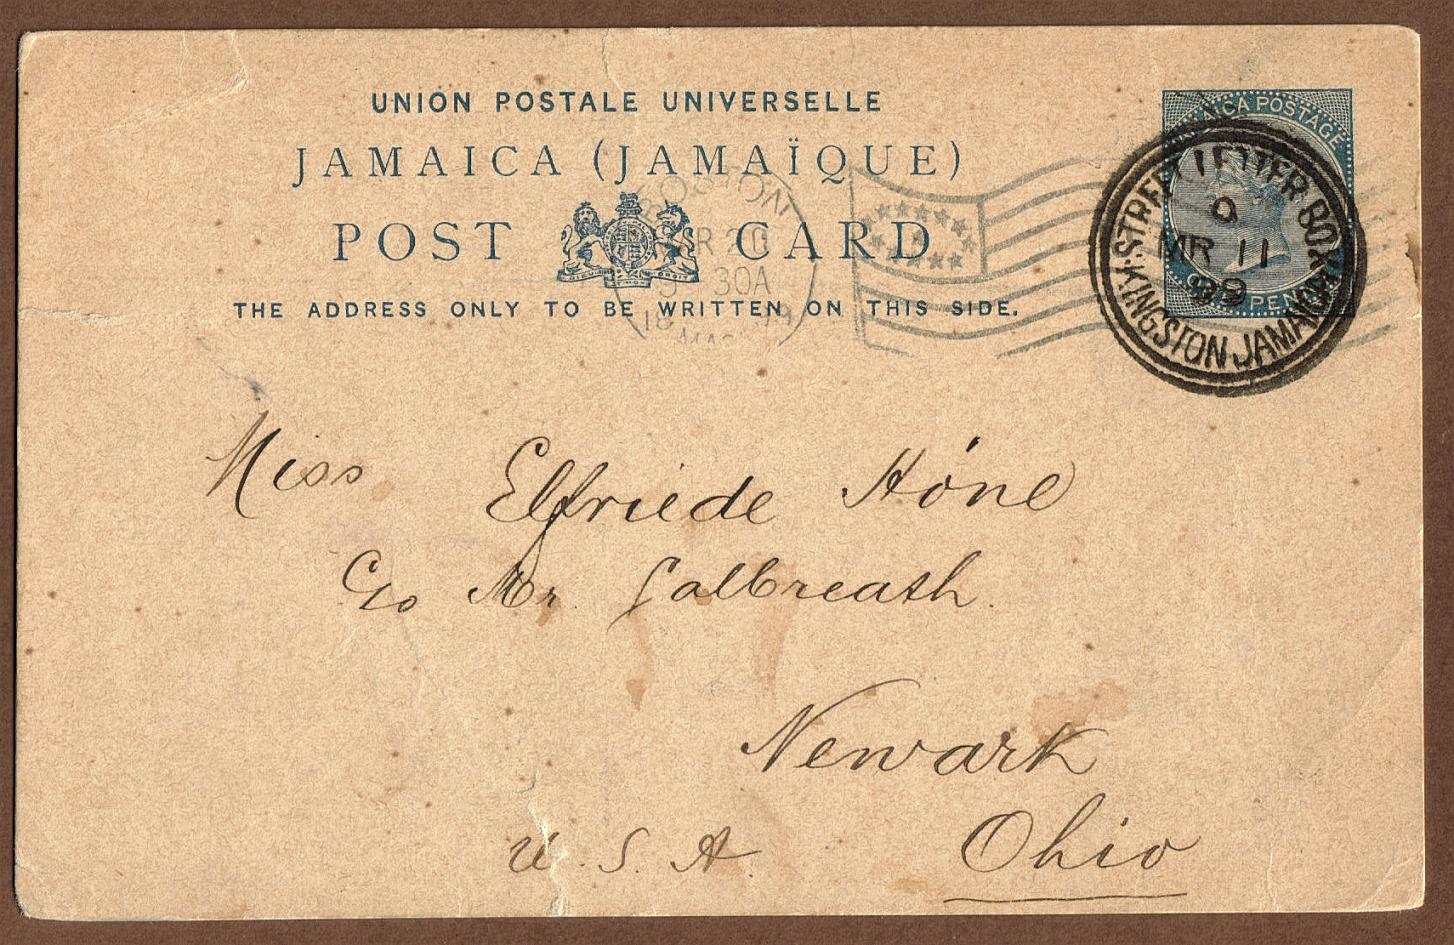 UNION POSTALE UNIVERSELLE
JAMAICA (JAMAÏQUE)
POST CARD
THE ADDRESS ONLY TO BE WRITTEN ON THIS SIDE.
JAMAICA POSTAGE
PENNY
STREET LETTER BOX
MR 11
99
KINGSTON JAMAICA
BOSTON
30A
Miss Elfriede Hóne
C/o Mr. Galbreath.
Newark
Ohio
U.S.A.